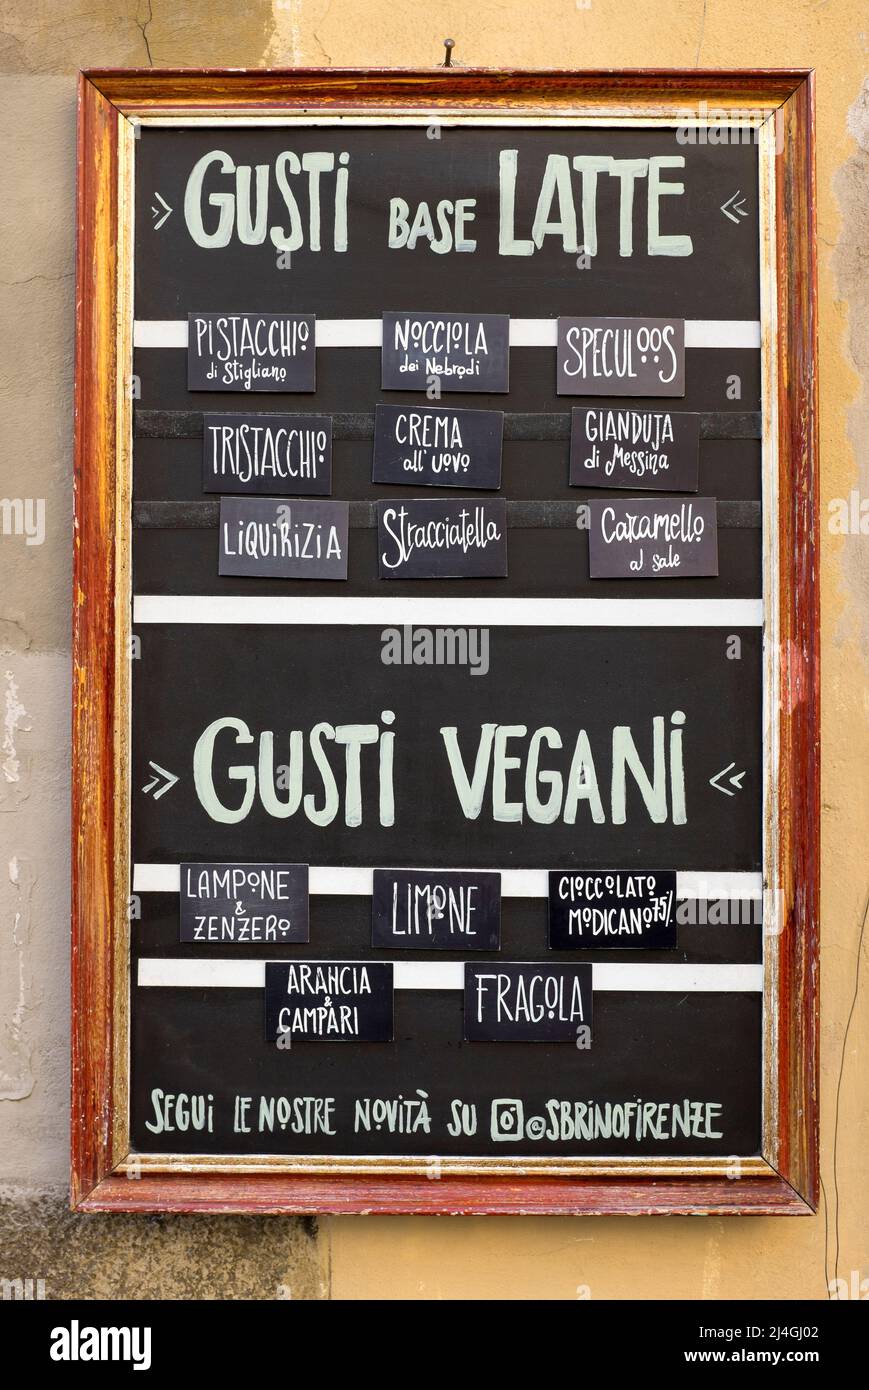 » GUSTI BASE LATTE «
PISTACCHIO
di Stigliano
NOCCIOLA
dei Nebrodi
SPECULOOS
TRISTACCHIO
CREMA
all'uovo
GIANDUJA
di Messina
LIQUIRIZIA
Stracciatella
Caramello
al sale
» GUSTI VEGANI «
LAMPONE
&
ZENZERO
LIMONE
CIOCCOLATO
MODICANO 75%
ARANCIA
&
CAMPARI
FRAGOLA
SEGUI LE NOSTRE NOVITÀ SU @SBRINOFIRENZE
alamy
Image ID: 2J4GJ02
www.alamy.com